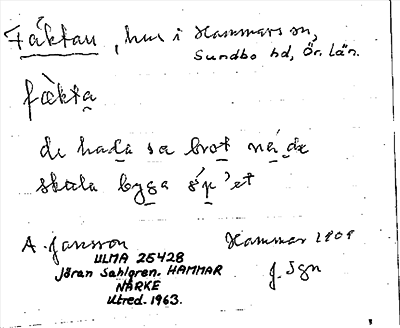 Fäktan, hus i Hammars sn,
Sundbo hd, Ör. län.
fäkta
de hada sa brot ná de
skula byga óp'et
A. Jansson Hammar 1909
ULMA 25428 J. Sgn
Jöran Sahlgren. HAMMAR
NÄRKE
Utred. 1963.